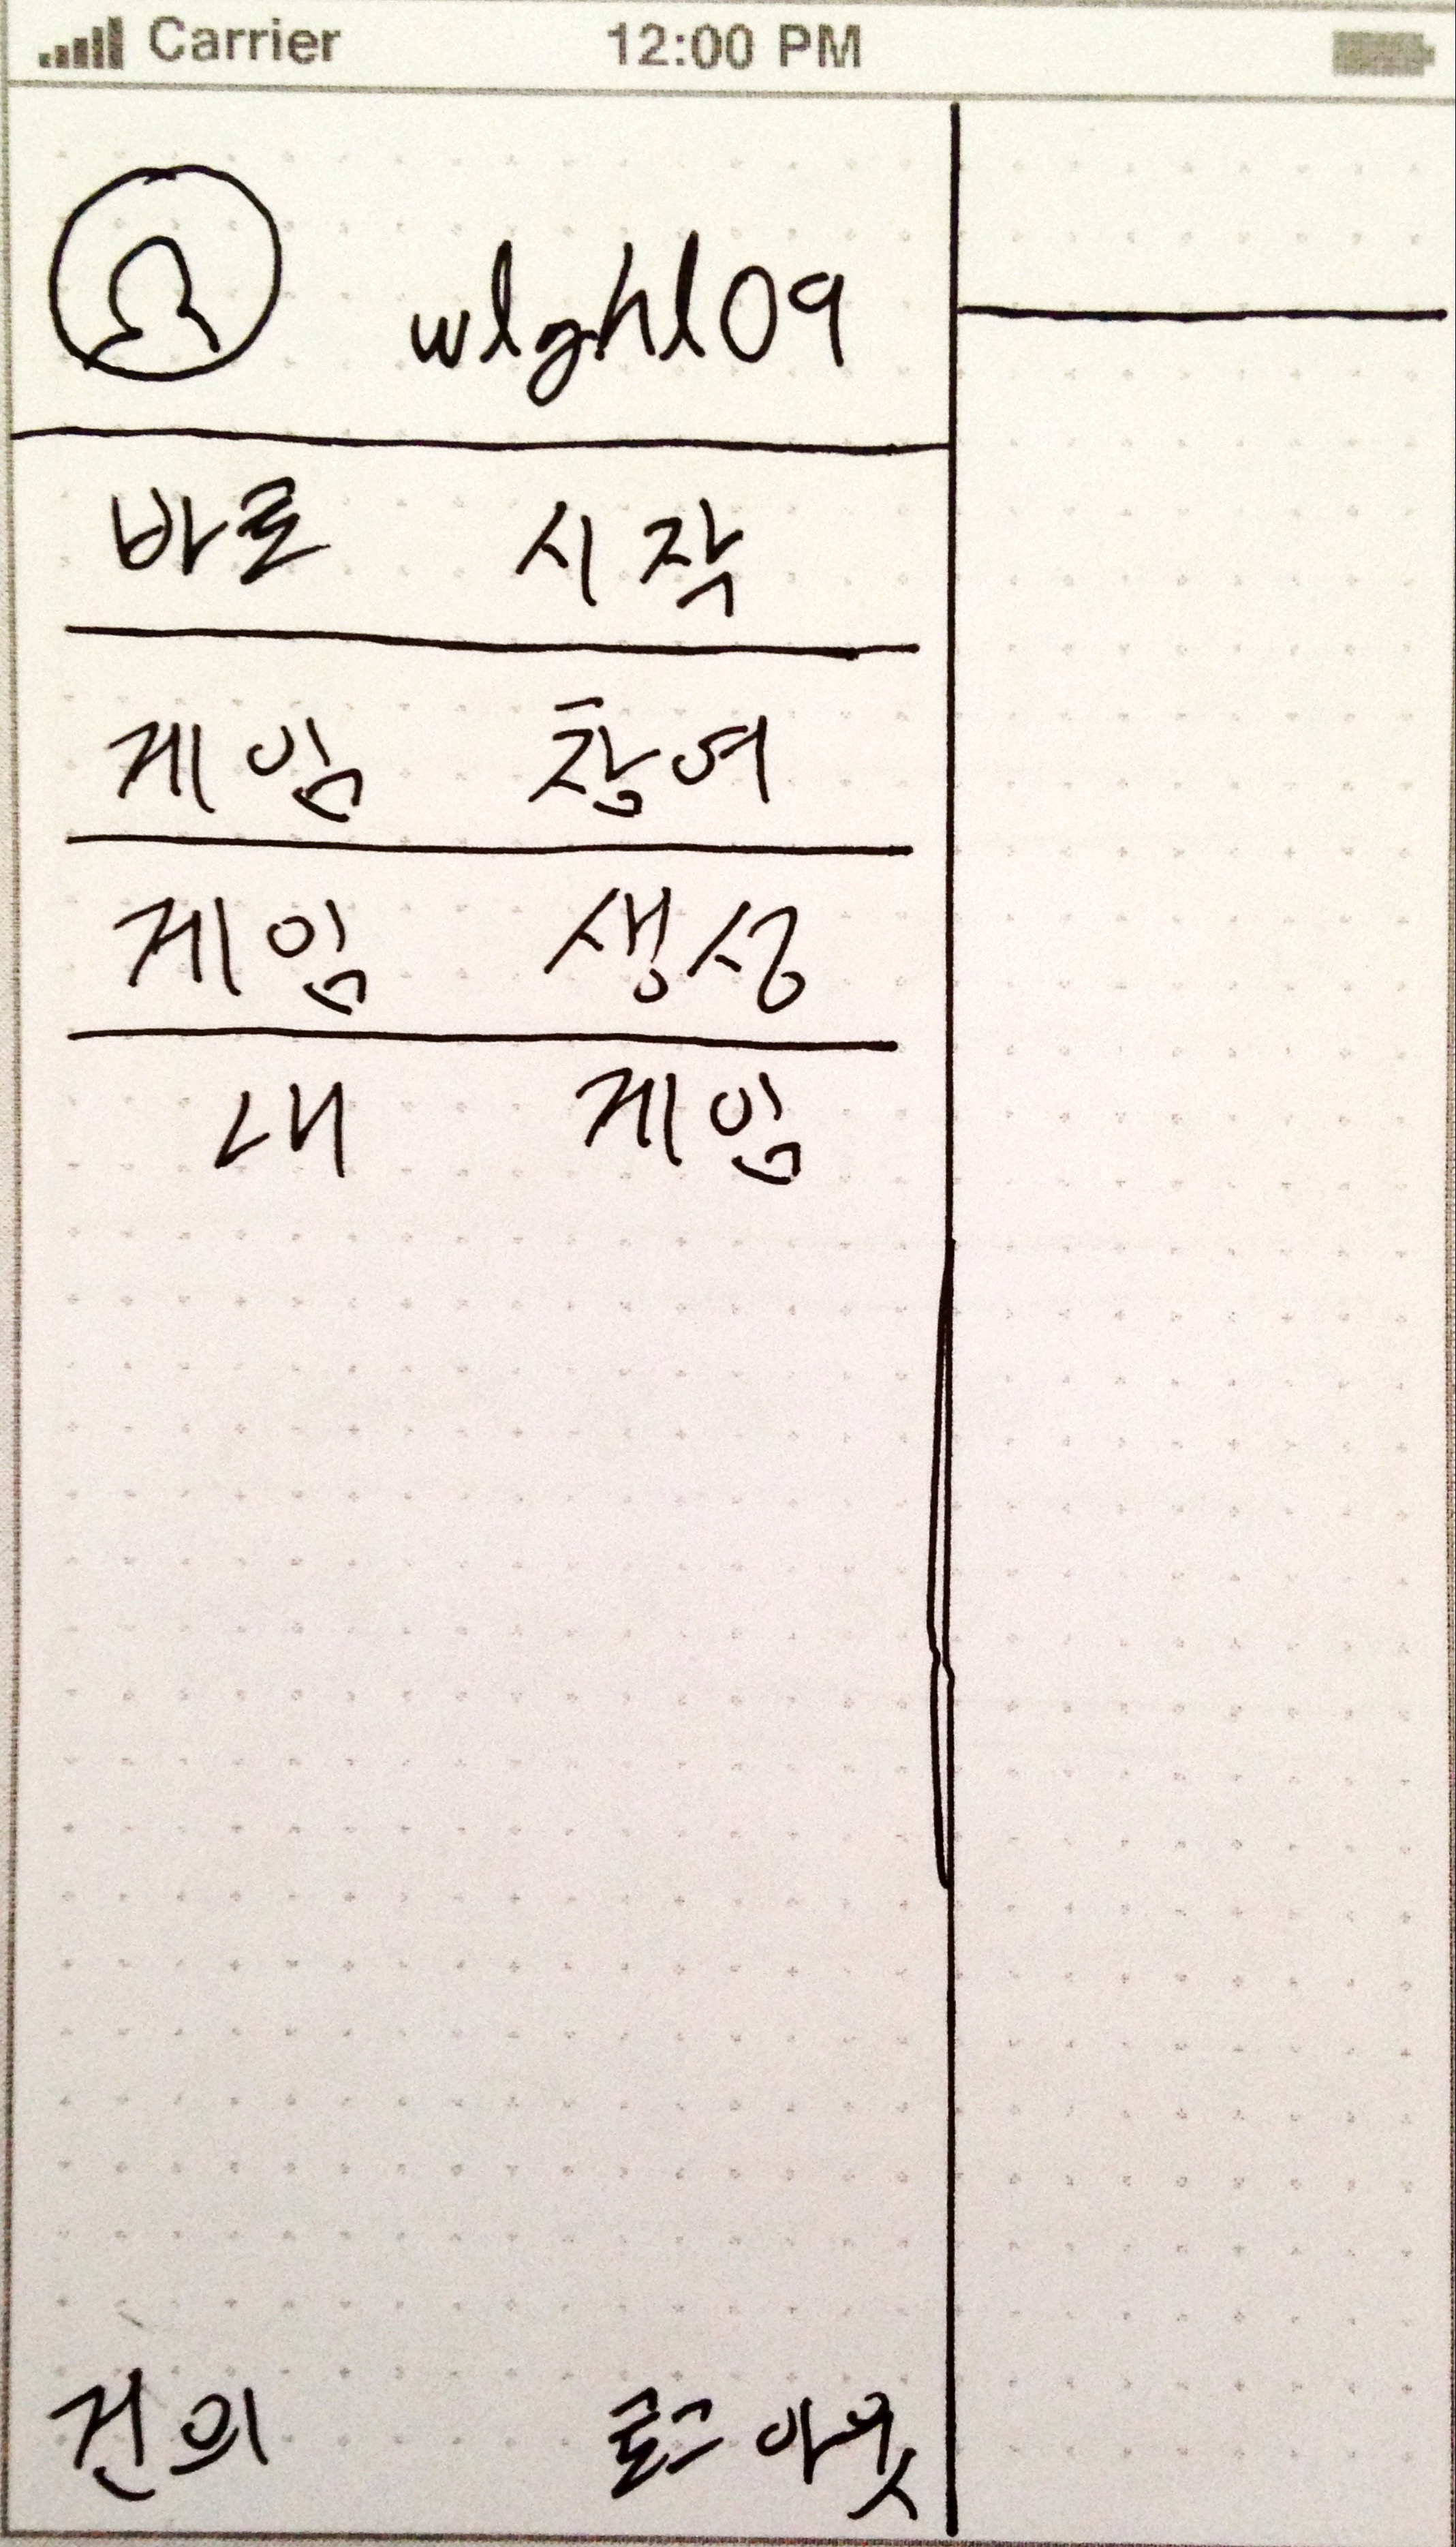 Carrier 12:00 PM
wlghl09
바로 시작
게임 참여
게임 생성
내 게임
건의 로그아웃